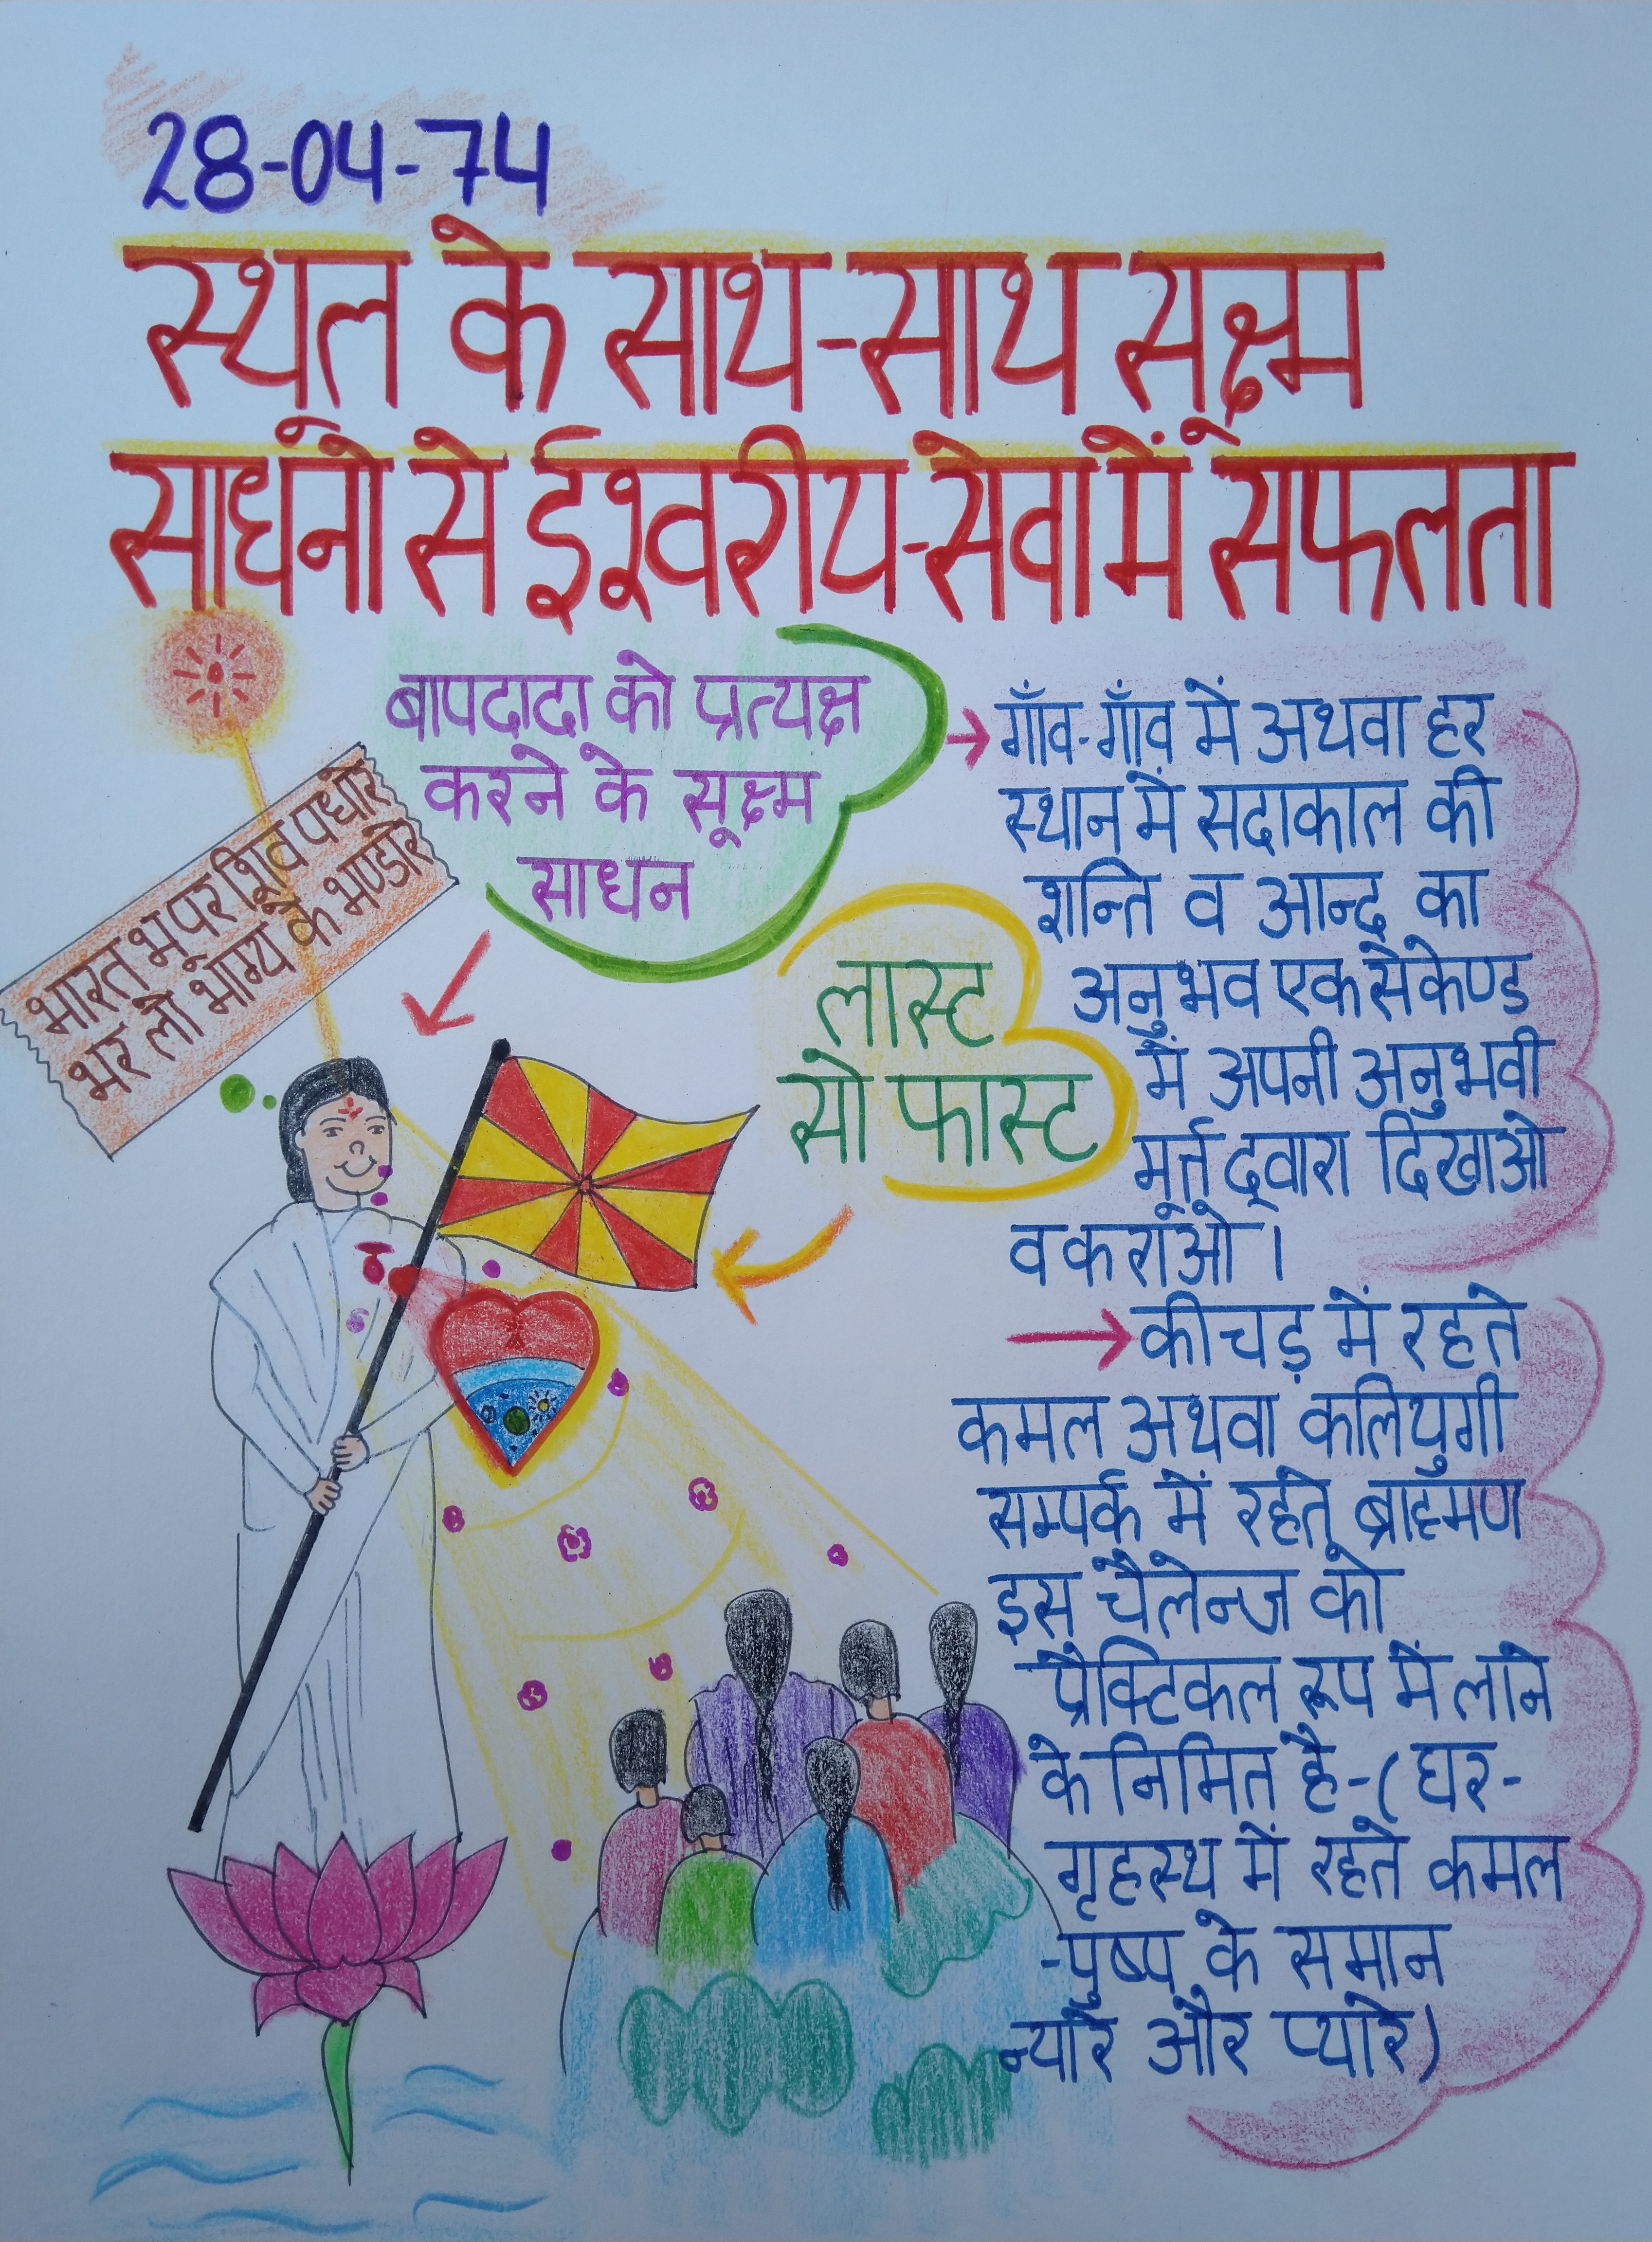 28-04-74
स्थूल के साथ-साथ सूक्ष्म
साधनो से ईश्वरीय-सेवा में सफलता
बापदादा को प्रत्यक्ष
करने के सूक्ष्म
साधन
भारत भू पर शिव पधारे
भर लो भाग्य के भण्डारे
लास्ट
सो फास्ट
→गाँव-गाँव में अथवा हर
स्थान में सदाकाल की
शन्ति व आन्द का
अनुभव एक सेकेण्ड
में अपनी अनुभवी
मूर्त द्वारा दिखाओ
व कराओ।
→कीचड़ में रहते
कमल अथवा कलियुगी
सम्पर्क में रहते ब्राह्मण
इस चैलेन्ज को
प्रैक्टिकल रूप में लाने
के निमित है-(घर-
गृहस्थ में रहते कमल
-पुष्प के समान
न्यारे और प्यारे)